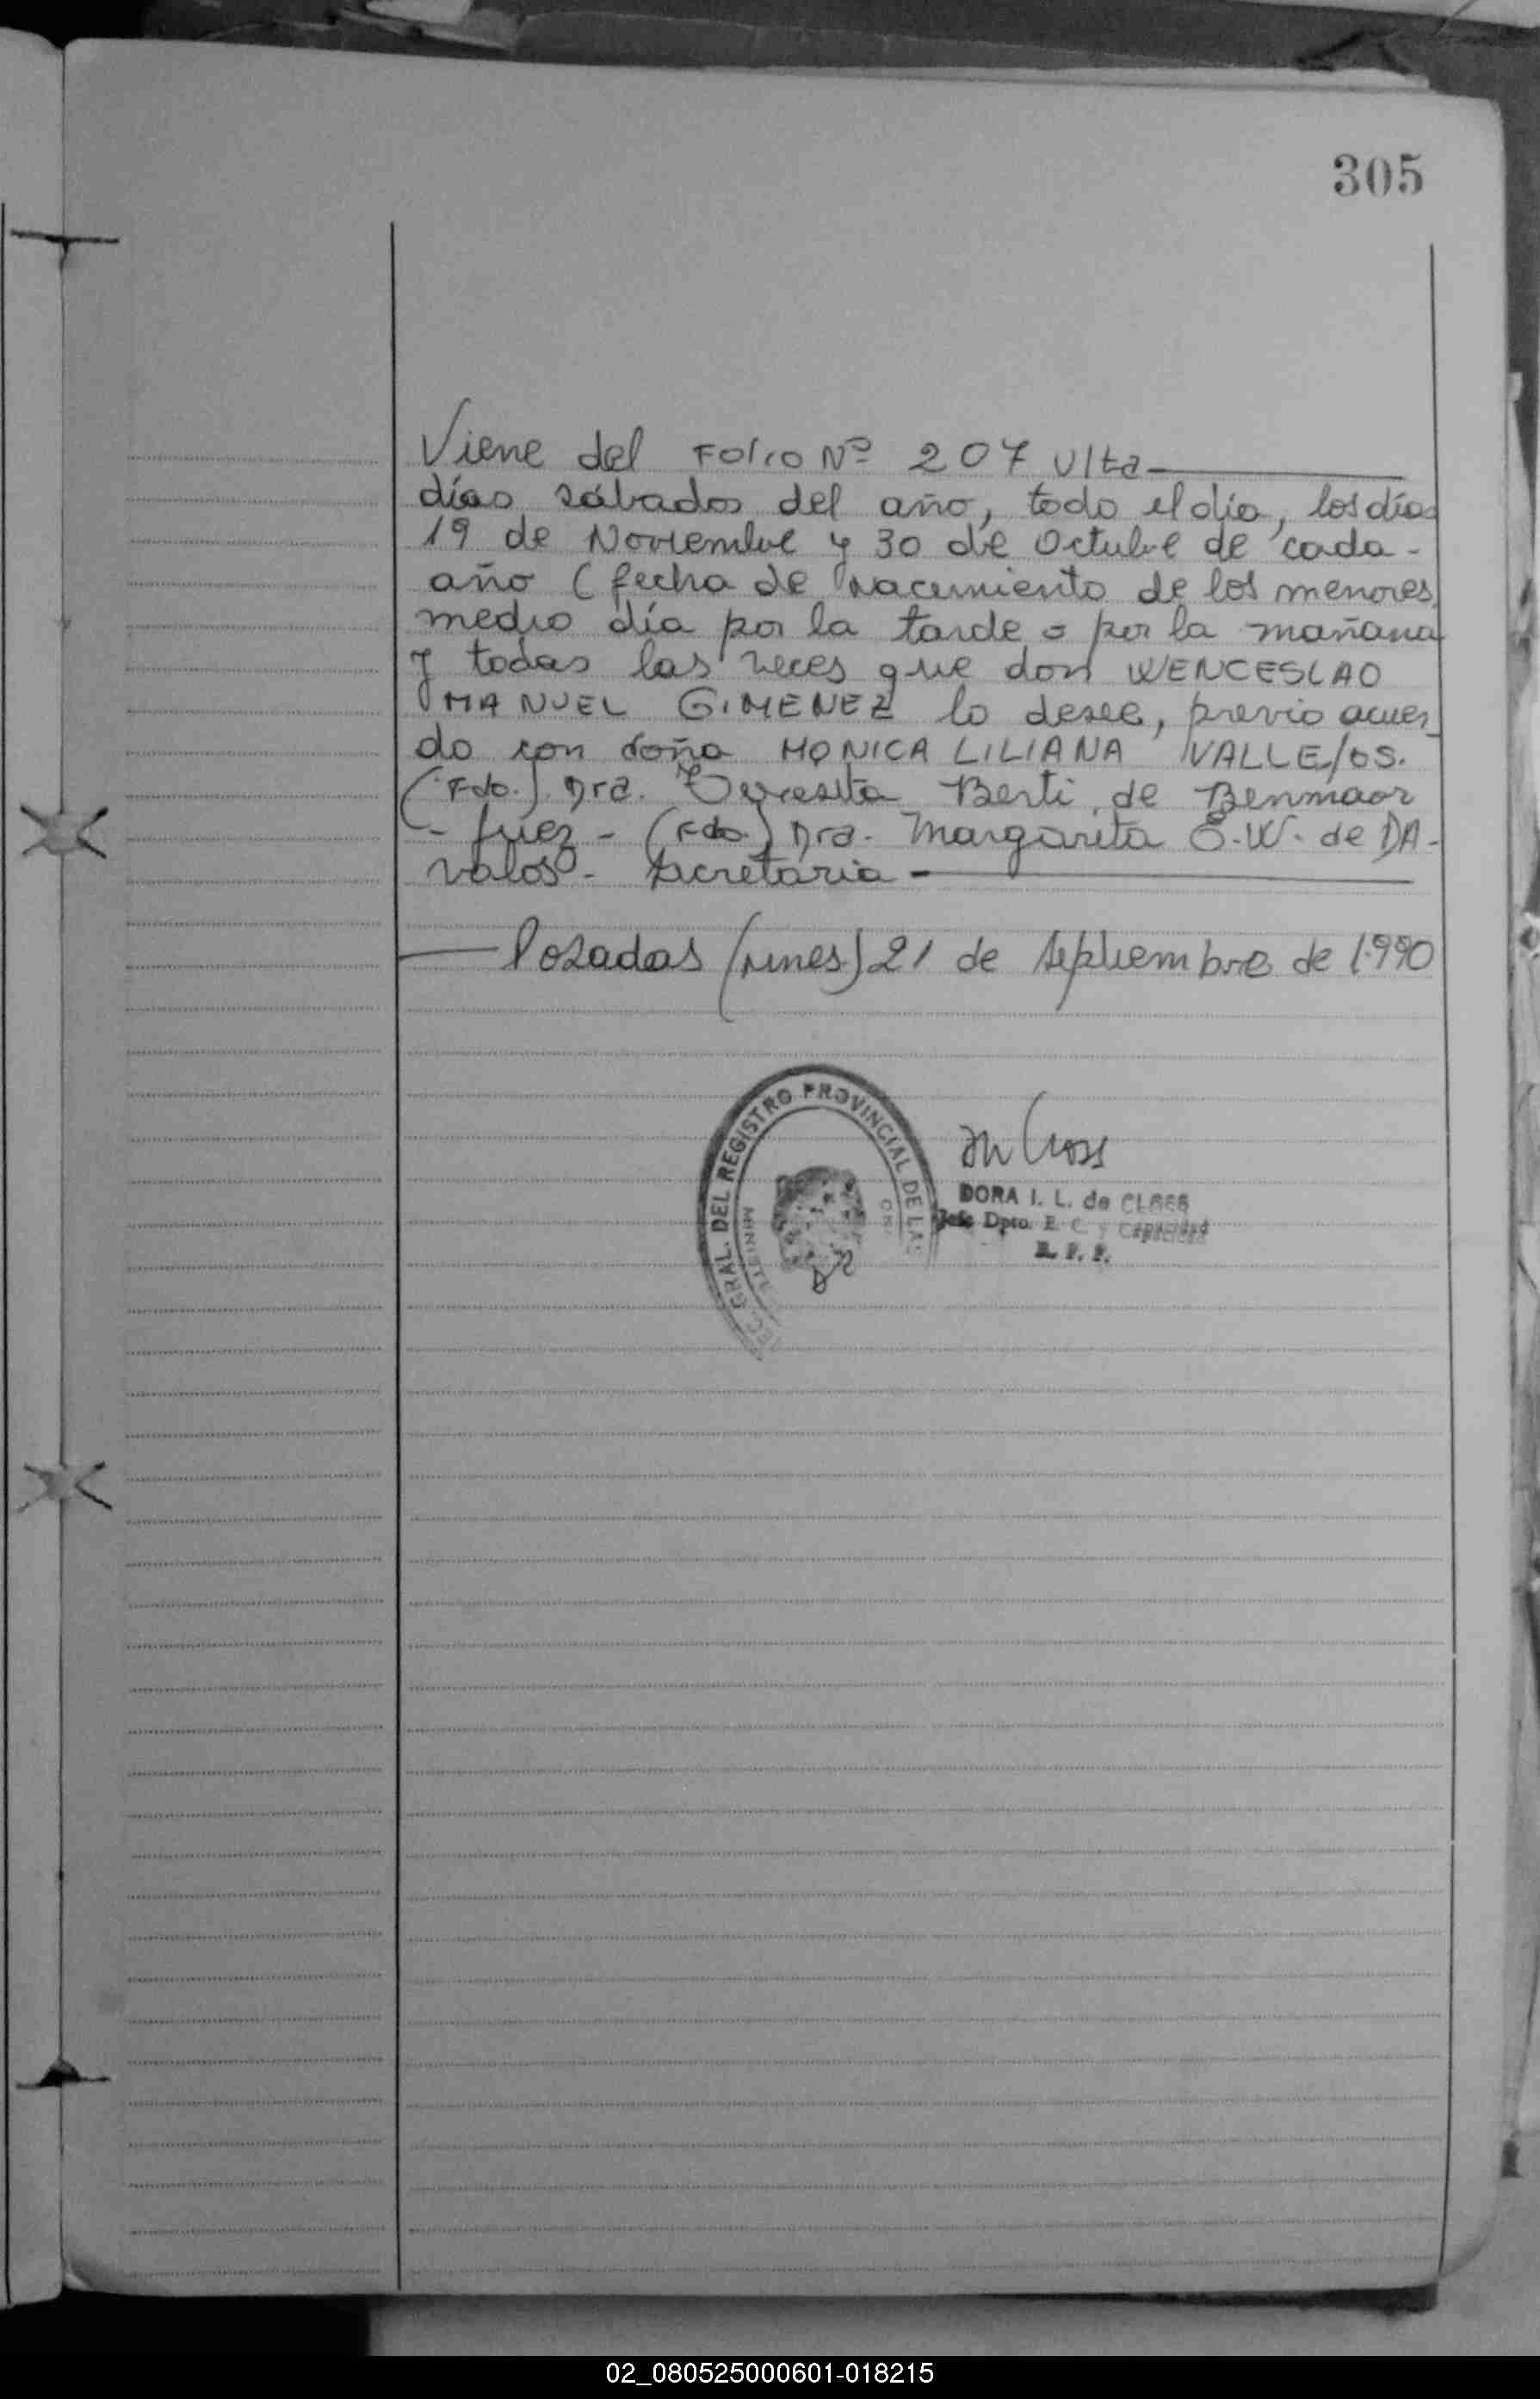 305
Viene del Folio Nº 207 Vlta
días sábados del año, todo el día, los días
19 de Noviembre y 30 de Octubre de cada -
año ( fecha de nacimiento de los menores,
medio día por la tarde o por la mañana
y todas las veces que don WENCESLAO
MANUEL GIMENEZ lo desee, previo acuer
do con doña MONICA LILIANA VALLEJOS.
(Fdo.) Dra. Teresita Berti de Benmaor
- Juez - (Fdo.) Dra. Margarita E. W. de DA-
valos - Secretaria -
Posadas (Mnes) 21 de Septiembre de 1.990
GRAL. DEL REGISTRO PROVINCIAL DE LA
DORA I. L. de CLOSS
Jefe Dpto. E. C. y Capacidad
R. P. P.
02_080525000601-018215